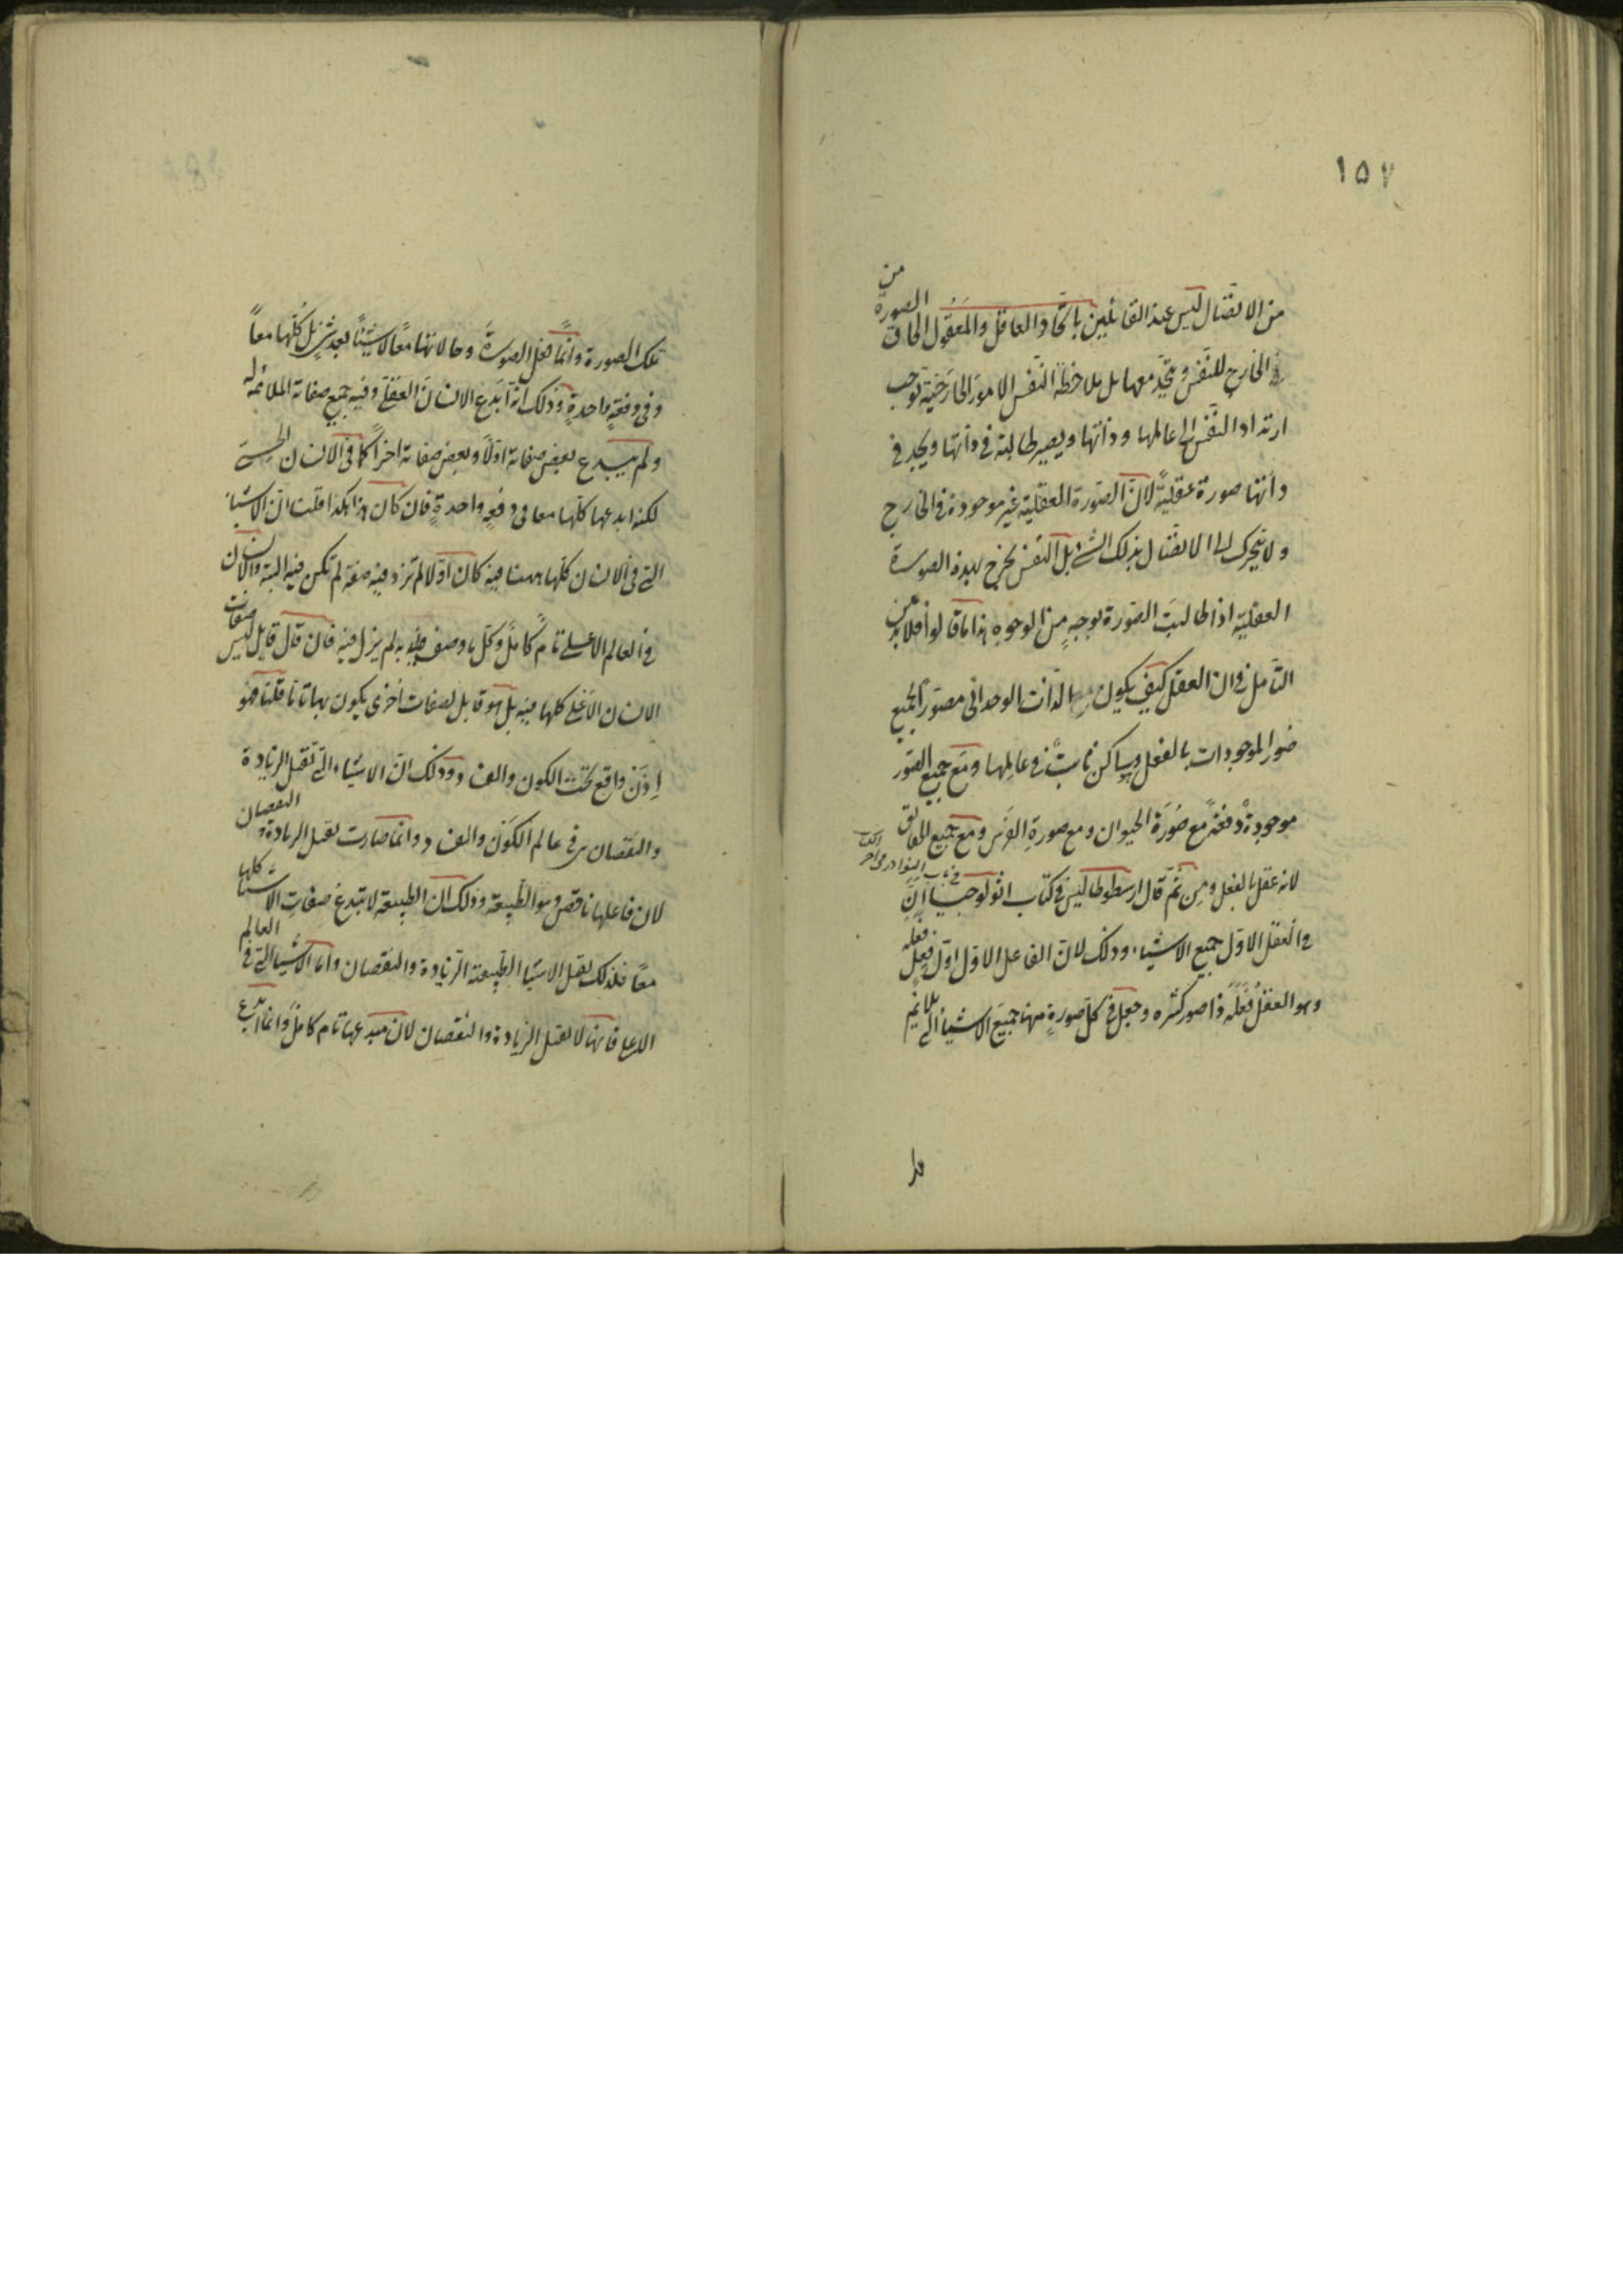 ١٥٧
من الاتصال ليس عند القائلين باتحاد العاقل والمعقول الحاق الصورة من
في الخارج للنفس ويتحد معها بل ملاحظة النفس الامور الخارجية توجب
ارتداد النفس الى عالمها وذاتها ويصير طالبة في ذاتها ويجد في
ذاتها صورة عقلية لان الصورة العقلية غير موجودة في الخارج
ولا يتحرك الى الاتصال بذلك الشئ بل النفس يخرج لهذه الصورة
العقلية اذا طالبت الصورة بوجه من الوجوه هذا ما قالوا فلا بد من
التأمل في ان العقل كيف يكون الذات الوحداني مصور الجميع
صور الموجودات بالفعل وساكن ثابت في عالمها ومع جميع الصور
موجودة دفعة مع صورة الحيوان ومع صورة الفرس ومع جميع الحقائق
لانه عقل بالفعل ومن ثم قال ارسطوطاليس في كتاب اثولوجيا ان
في العقل الاول جميع الاشياء وذلك لان الفاعل الاول اول فعل فعله
وهو العقل فعله ذا صور كثيره وجعل في كل صورة منها جميع الاشياء التي يلايم
تلك الصورة وانما فعل الصورة وحالاتها معا لا شيئا بعد شئ بل كلها معا
وفي دفعة واحدة وذلك انه ابدع الانسان العقلي وفيه جميع صفاته الملائمة له
ولم يبدع بعض صفاته اولا وبعض صفاته اخرا كما في الانسان الحسي
لكنه ابدعها كلها معا في دفعة واحدة فان كان هذا هكذا قلت ان الاشياء
التي في الانسان كلها ههنا فيه كان اولا لم تزد فيه صفة لم تكن فيه البتة والانسان
في العالم الاعلى تام كامل وكل ما وصف به لم يزل فيه فان قال قايل ليس صفات
الانسان الاعلى كلها فيه بل هو قابل لصفات اخرى يكون بها تاما قلنا فهو
اذن واقع تحت الكون والفساد وذلك ان الاشياء التي تقبل الزيادة
والنقصان هي في عالم الكون والفساد وانما صارت تقبل الزيادة والنقصان
لان فاعلها ناقص وهو الطبيعة وذلك ان الطبيعة لا تبدع صفات الاشياء كلها
معا فلذلك يقبل الاشياء الطبيعة الزيادة والنقصان واما الاشياء التي في العالم
الاعلى فانها لا تقبل الزيادة والنقصان لان مبدعها تام كامل وانما ابدع